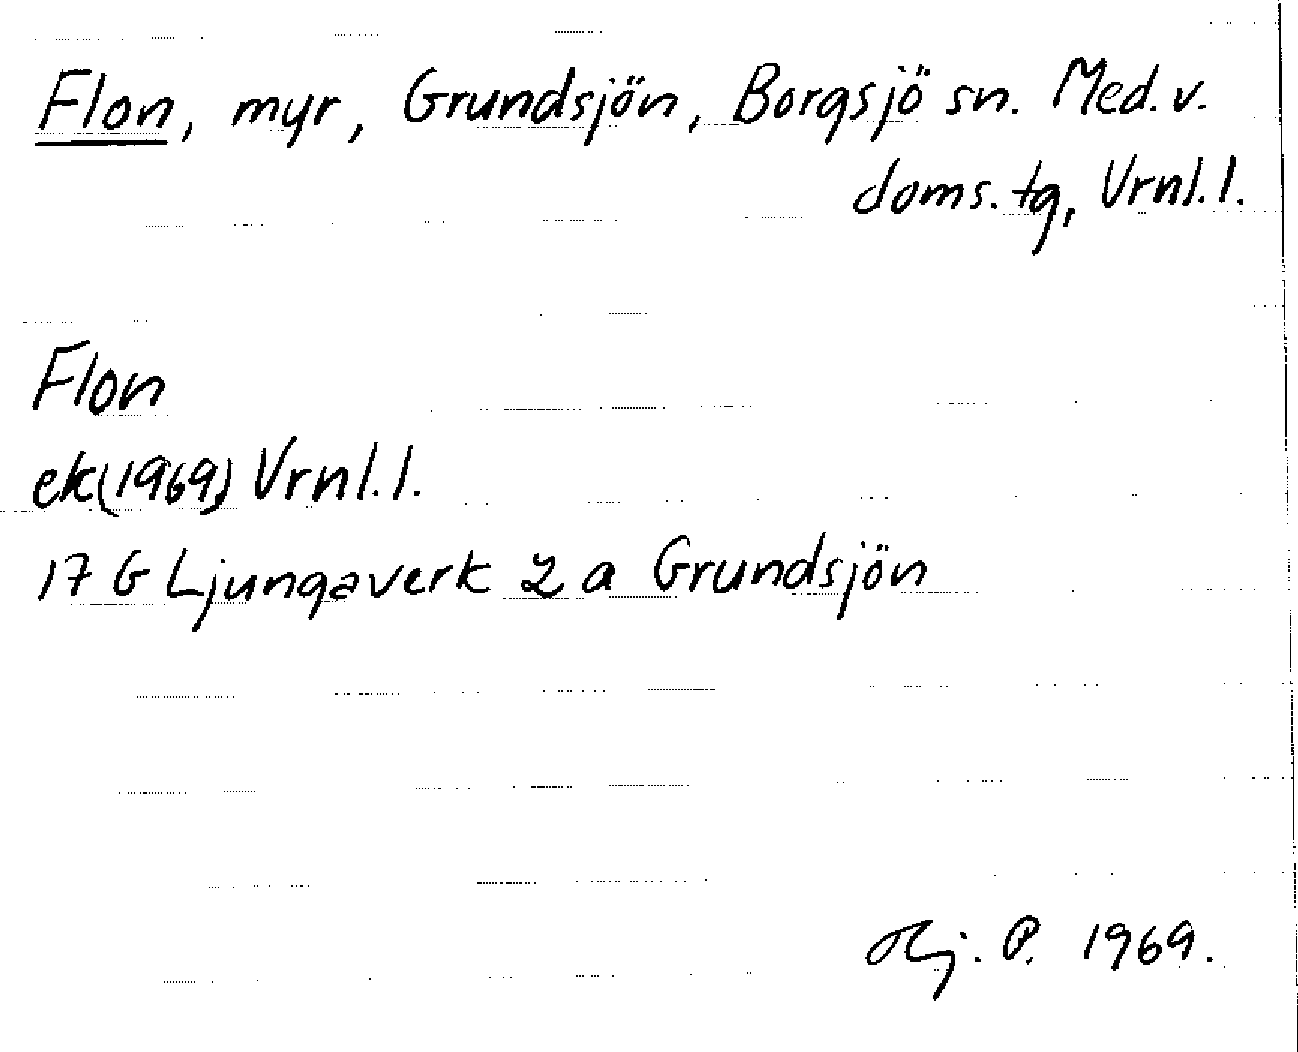 Flon, myr, Grundsjön, Borgsjö sn. Med. v.
doms. tg, Vrnl. l.
Flon
ek (1969) Vrnl. l.
17 G Ljungaverk 2 a Grundsjön
Hj. P. 1969.